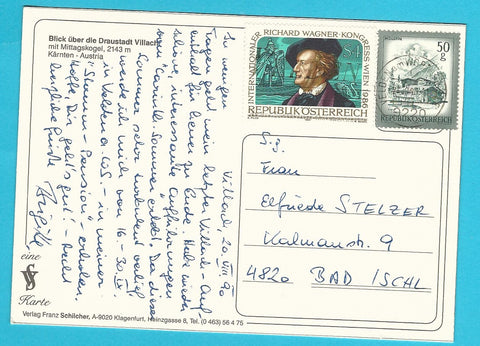 Blick über die Draustadt Villach
mit Mittagskogel, 2143 m
Kärnten - Austria
Villach, 20. VIII. 90
In wenigen
Tagen geht mein letzter Villach - Auf-
enthalt für heuer zu Ende. Hab wieder
schöne, interessante Aufführungen
"Carinth. Sommer" erlebt. Da dieser
Sommer sehr turbulent verlief
werde ich mich von 16 - 30. IX.
in Velden a. WS. - in meiner
"Stamm - Pension" - erholen.
Hoffe Dir geht's gut! - Recht
herzliche Grüße
Brigitte
eine
Karte
Verlag Franz Schilcher, A-9020 Klagenfurt, Heinzgasse 8, Tel. (0 463) 56 4 75
INTERNATIONALER RICHARD WAGNER-KONGRESS WIEN 1986
REPUBLIK ÖSTERREICH
50
g
REPUBLIK ÖSTERREICH
Frau
Elfriede STELZER
Kalmanstr. 9
4820 BAD ISCHL